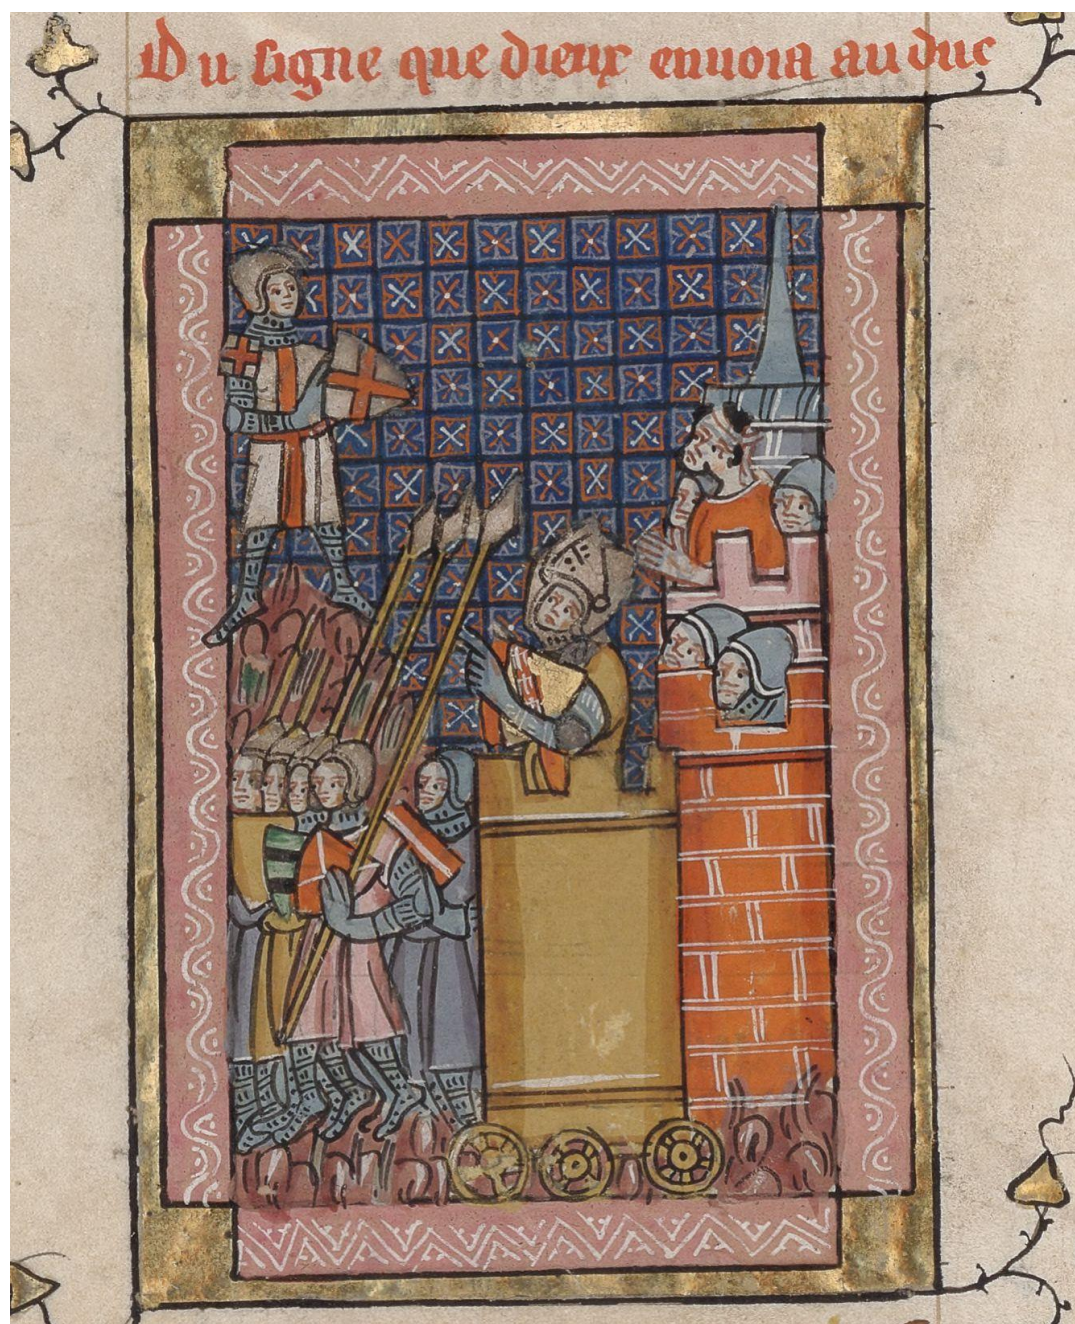 Du signe que dieux enuoia au duc